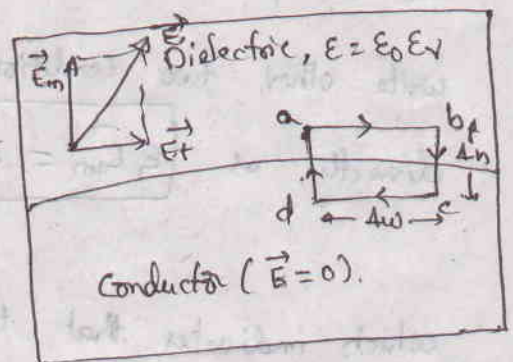 E⃗
E⃗n
Dielectric, ε = ε₀ εr
E⃗t
a
b
Δh
d
Δw
c
Conductor (E⃗ = 0).